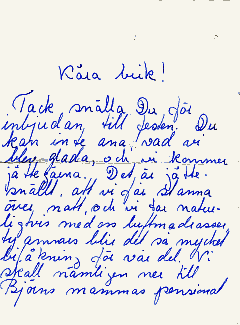 Kära brik!
Tack snälla Du för
inbjudan till festen. Du
kan inte ana, vad vi
blev glada, och vi kommer
jättegärna. Det är jätte-
snällt, att vi får stanna
över natt, och vi tar natur-
ligtvis med oss luftmadrasser,
ty annars blir det så mycket
bråkning för vår del. Vi
skall nämligen ner till
Björns mammas pensionat